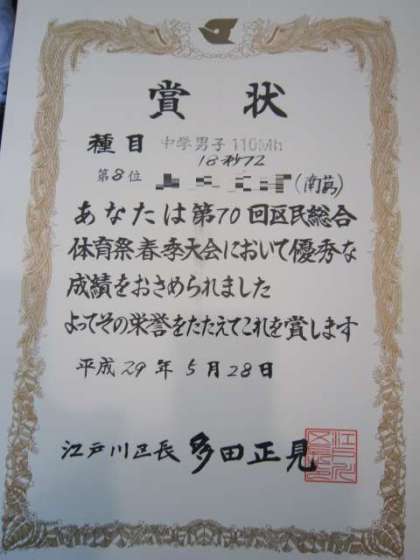 賞状
種目 中学男子 110MH
18秒72
第8位 (南葛)
あなたは第70回区民総合
体育祭春季大会において優秀な
成績をおさめられました
よってその栄誉をたたえてこれを賞します
平成29年5月28日
江戸川区長 多田正見